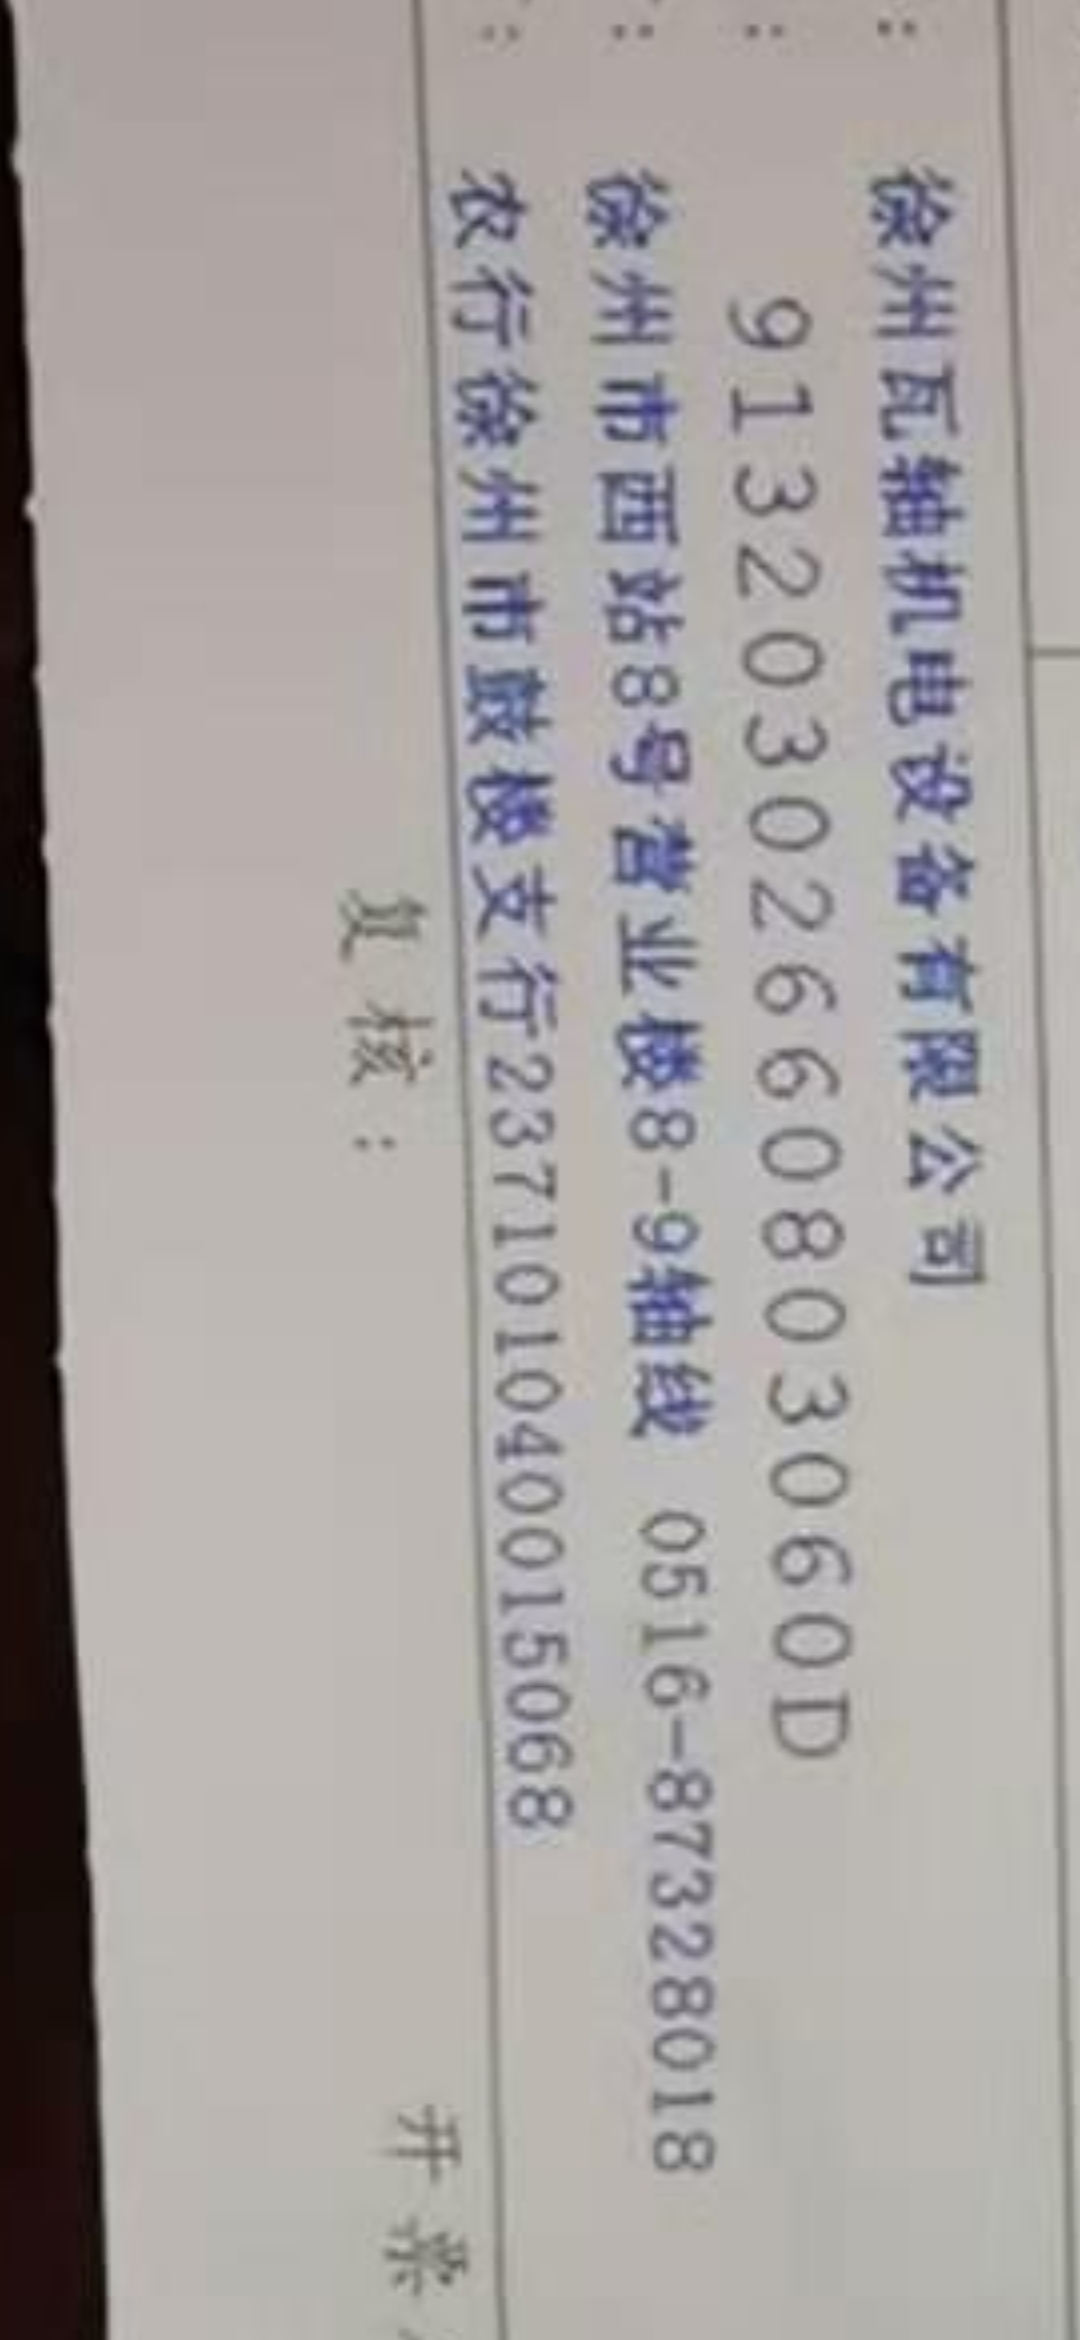 : 徐州瓦轴机电设备有限公司
: 91320302660803060D
: 徐州市西站8号营业楼8-9轴线 0516-87328018
: 农行徐州市鼓楼支行237101040015068
复核:
开票